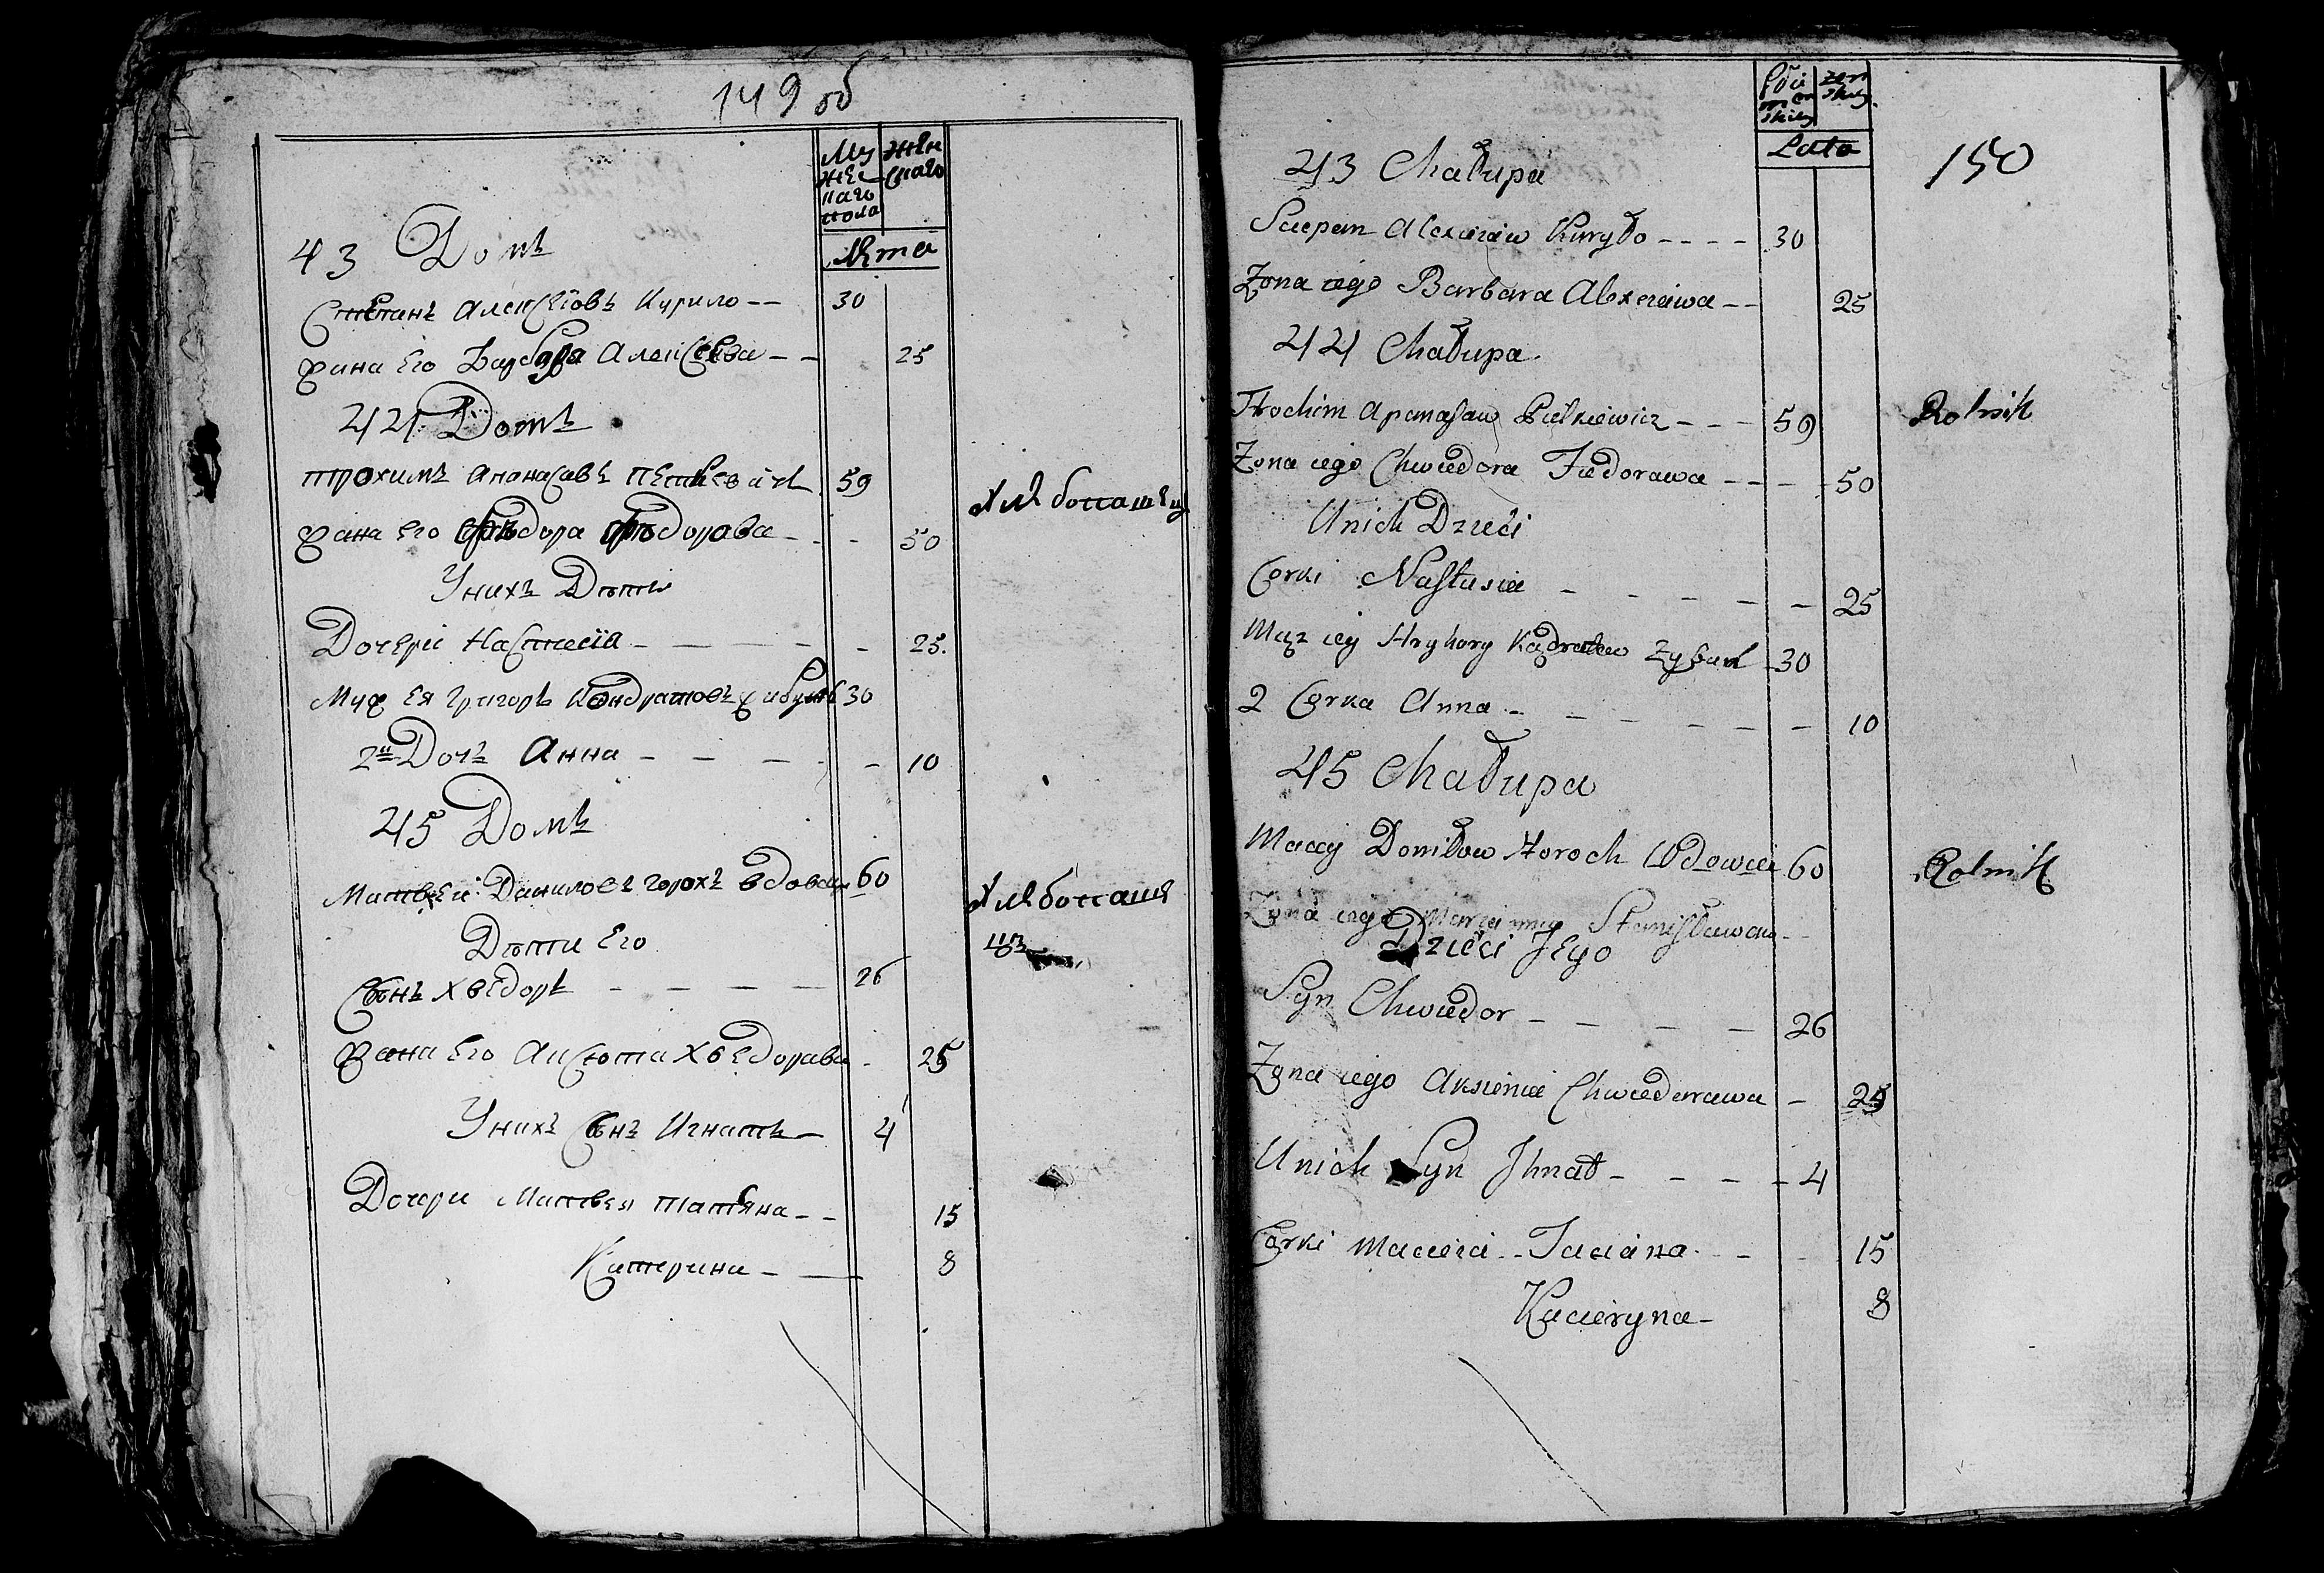 149 об
Мужескаго пола
Женскаго
Лета
43 Домъ
Степанъ Алексѣовъ Курило -- 30
Жина Его Барбара Алексеева -- 25
44 Домъ
Трохимъ Апанасавъ Петкевичъ 59
Хлѣбопашец
Жана Его Фѣодора Фѣодорава - - - 50
Унихъ Дѣти
Дочери Настасія - - - - 25.
Муж Ея Григоръ Кондратовъ 30
2я Дочъ Анна - - - - - 10
45 Домъ
Матвеи Даниловъ Горохъ вдовец 60
Хлѣбопаше
цъ
Дѣти Его
Сынъ Хведоръ - - - - 26
Жана Его Аксюта Хведорава - 25
Унихъ Сынъ Игнатъ - 4
Дочери Матвея Татяна - - 15
Катерина - - 8
150
Lata
43 Chałupa
Sciepan Alexieiew Kuryło - - - - 30
Zona iego Barbara Alexieiewa - - 25
44 Chałupa.
Trochim Apanasaw Pietkiewicz - - - 59
Rolnik
Zona iego Chwiedora Fiedorawa - - - - 50
Unich Dzieci
Corki Nastasia - - - - - 25
Mąz iey Hryhory Kądratow 30
2 Corka Anna - - - - - - 10
45 Chałupa
Maciey Daniłow Horoch Wdowiec 60
Rolnik
Zona iego Maryanna Stanisławowa - -
Dzieci Jego
Syn Chwiedor - - - - 26
Zona iego Aksienia Chwiedorawa - 25
Unich Syn Ihnat - - - - 4
Corki Macieia - - Taciana - - 15
Kacieryna - 8